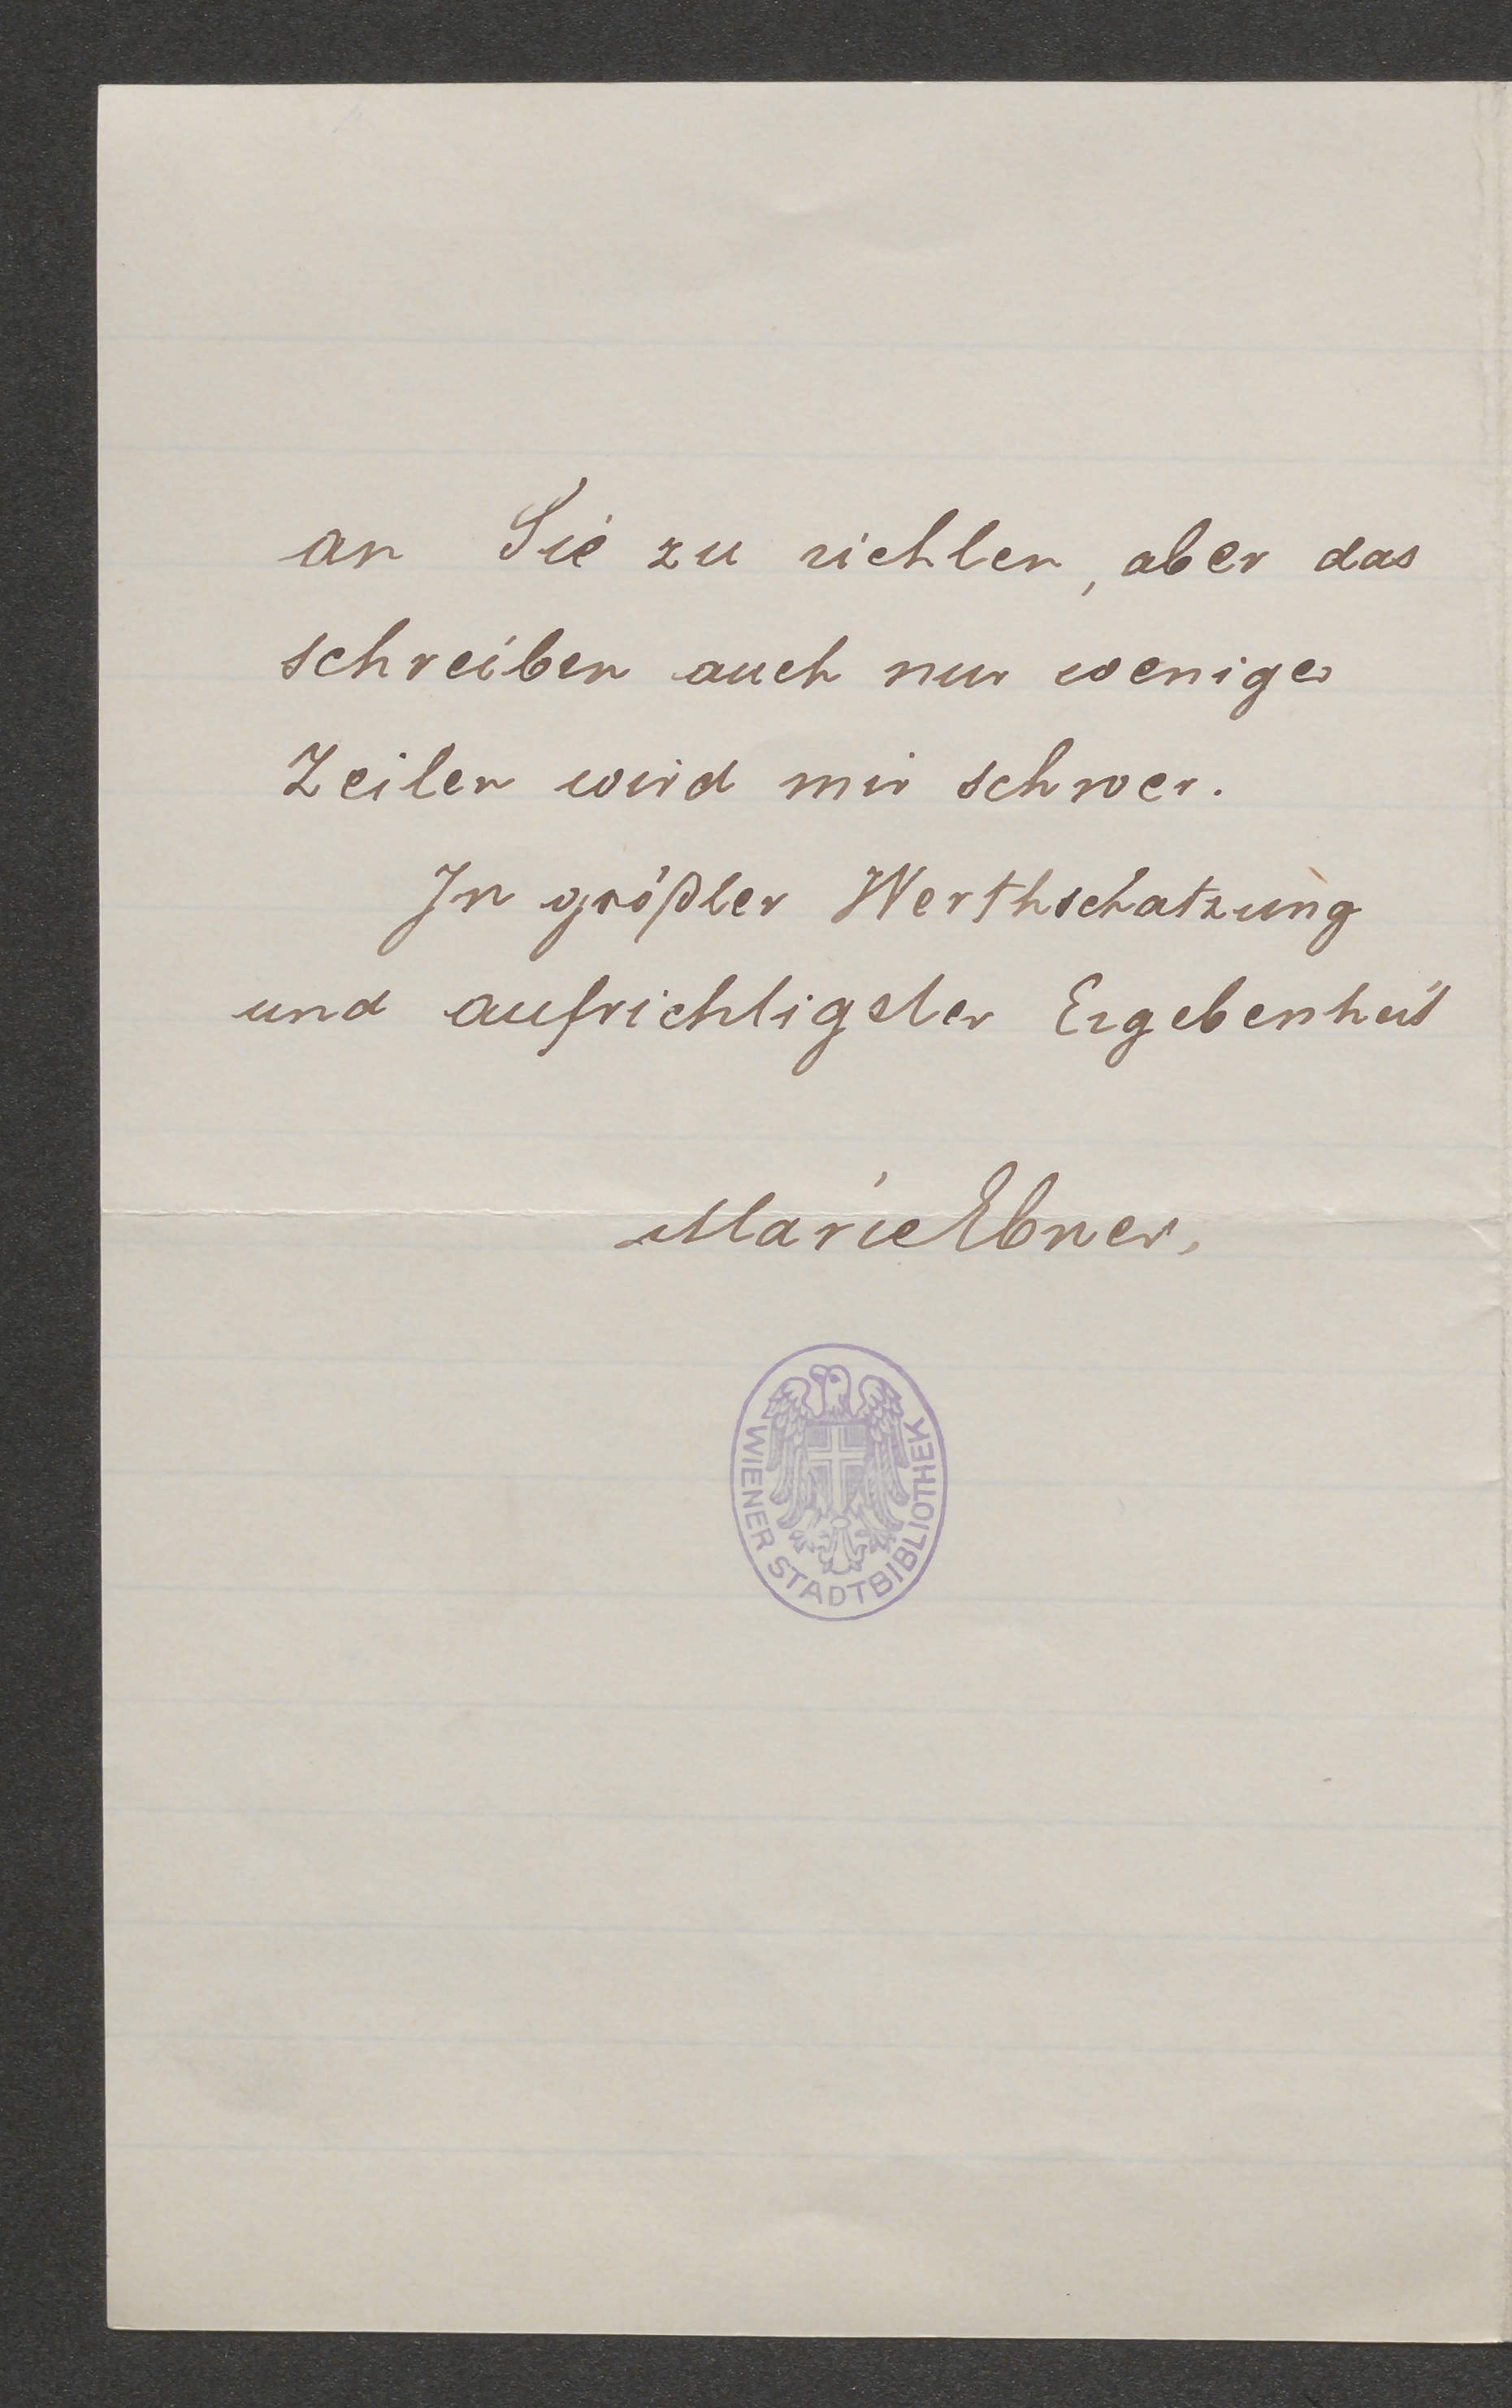 an Sie zu richten, aber das
schreiben auch nur weniger
Zeilen wird mir schwer.
In größter Werthschatzung
und aufrichtigster Ergebenheit
Marie Ebner.
WIENER STADTBIBLIOTHEK